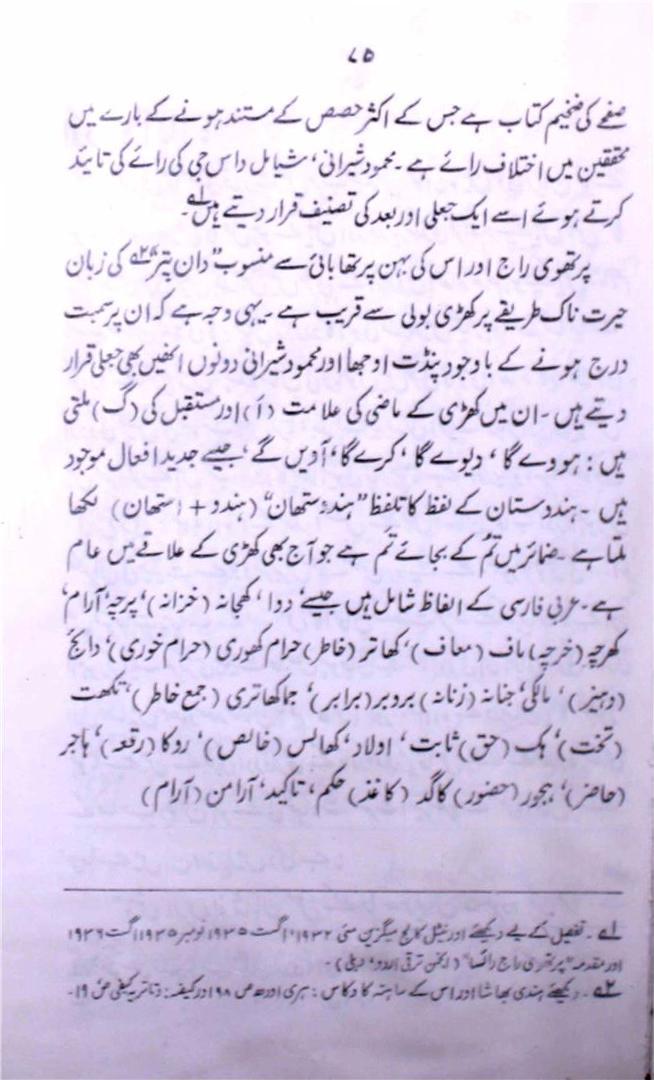 ۷۵
صفحے کی ضخیم کتاب ہے جس کے اکثر حصص کے مستند ہونے کے بارے میں
محققین میں اختلاف رائے ہے۔ محمود شیرانی، شیامل داس جی کی رائے کی تائید
کرتے ہوئے اسے ایک جعلی اور بعد کی تصنیف قرار دیتے ہیں۔ لہ
پرتھوی راج اور اس کی بہن پرتھا بائی سے منسوب "دان پتر" ۲ہ کی زبان
حیرت ناک طریقے پر کھڑی بولی سے قریب ہے۔ یہی وجہ ہے کہ ان پر سمبت
درج ہونے کے باوجود پنڈت اوجھا اور محمود شیرانی دونوں انھیں بھی جعلی قرار
دیتے ہیں۔ ان میں کھڑی کے ماضی کی علامت (اَ) اور مستقبل کی (گ) ملتی
ہیں: ہووے گا، دیوے گا، کرے گا، آویں گے، جیسے جدید افعال موجود
ہیں۔ ہندوستان کے لفظ کا تلفظ "ہندوستھان" (ہندو + استھان) لکھا
ملتا ہے۔ ضمائر میں تُم کے بجائے تَم ہے جو آج بھی کھڑی کے علاقے میں عام
ہے۔ عربی فارسی کے الفاظ شامل ہیں جیسے، دوا، کھجانہ (خزانہ)، پرچہ، آرام،
کھرچہ (خرچہ) ماف (معاف)، کھاتر (خاطر) حرام کھوری (حرام خوری)، دایج
(دہیز)، مالکی، جنانہ (زنانہ) بروبر (برابر)، جماکھاتری (جمع خاطر)، تکھت
(تخت)، ہک (حق) ثابت، اولاد، کھالس (خالص)، روکا (رقعہ)، ہاجر
(حاضر)، ہجور (حضور) کاگد (کاغذ) حکم، تاکید، آرامن (آرام)
لہ۔ تفصیل کے لیے دیکھئے اورینٹل کالج میگزین مئی ۱۹۳۴، اگست ۱۹۳۵ نومبر ۱۹۳۵، اگست ۱۹۳۶
اور مقدمہ "پرتھوی راج راسا" (انجمن ترقی اردو، دہلی)۔
۲ہ۔ دیکھئے ہندی بھاشا اور اس کے ساہتہ کا وکاس: ہری اودھ ص ۱۹۸ اور کیفیہ: دتاتریہ کیفی ص ۱۹۔